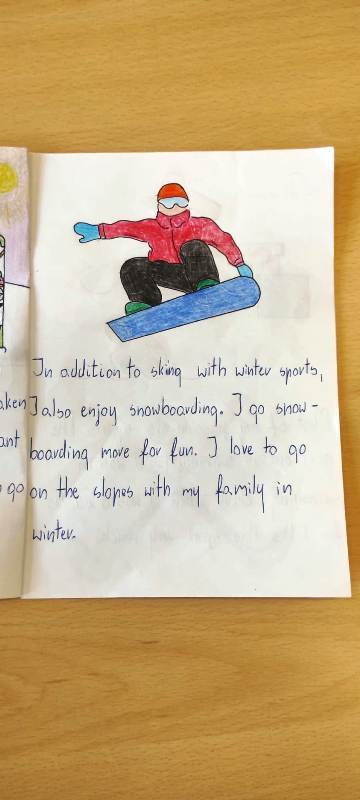 In addition to skiing with winter sports,
I also enjoy snowboarding. I go snow-
boarding more for fun. I love to go
on the slopes with my family in
winter.
aken
ant
go